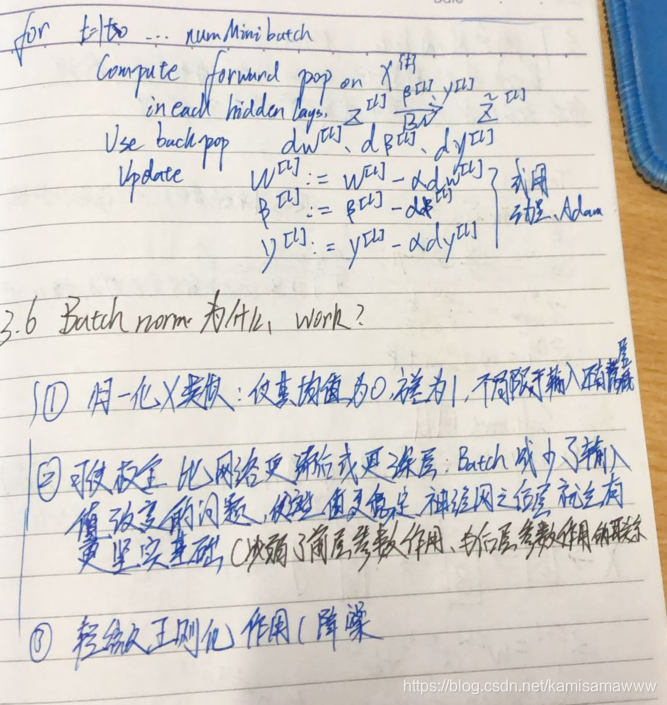 for t=1to ... numMinibatch
Compute forward pop on X^{t}
in each hidden lays. Z^[l] β^[l] γ^[l] BN → Z̃^[l]
Use backpop dw^[l]、dβ^[l]、dγ^[l]
Update W^[l] := W^[l] - αdw^[l]
β^[l] := β^[l] - dβ^[l]
γ^[l] := γ^[l] - αdγ^[l]
或用
动量、Adam
3.6 Batch norm 为什么 work?
① 归一化X类似：使其均值为0，方差为1，不局限于输入还有隐藏层
② 可使权重比网络更滞后或更深层：Batch减少了输入
值改变的问题，使这些值变稳定，神经网之后层就会有
更坚实基础，(减弱了前层参数作用、与后层参数作用的联系
③ 轻微正则化作用(降噪
https://blog.csdn.net/kamisamawww